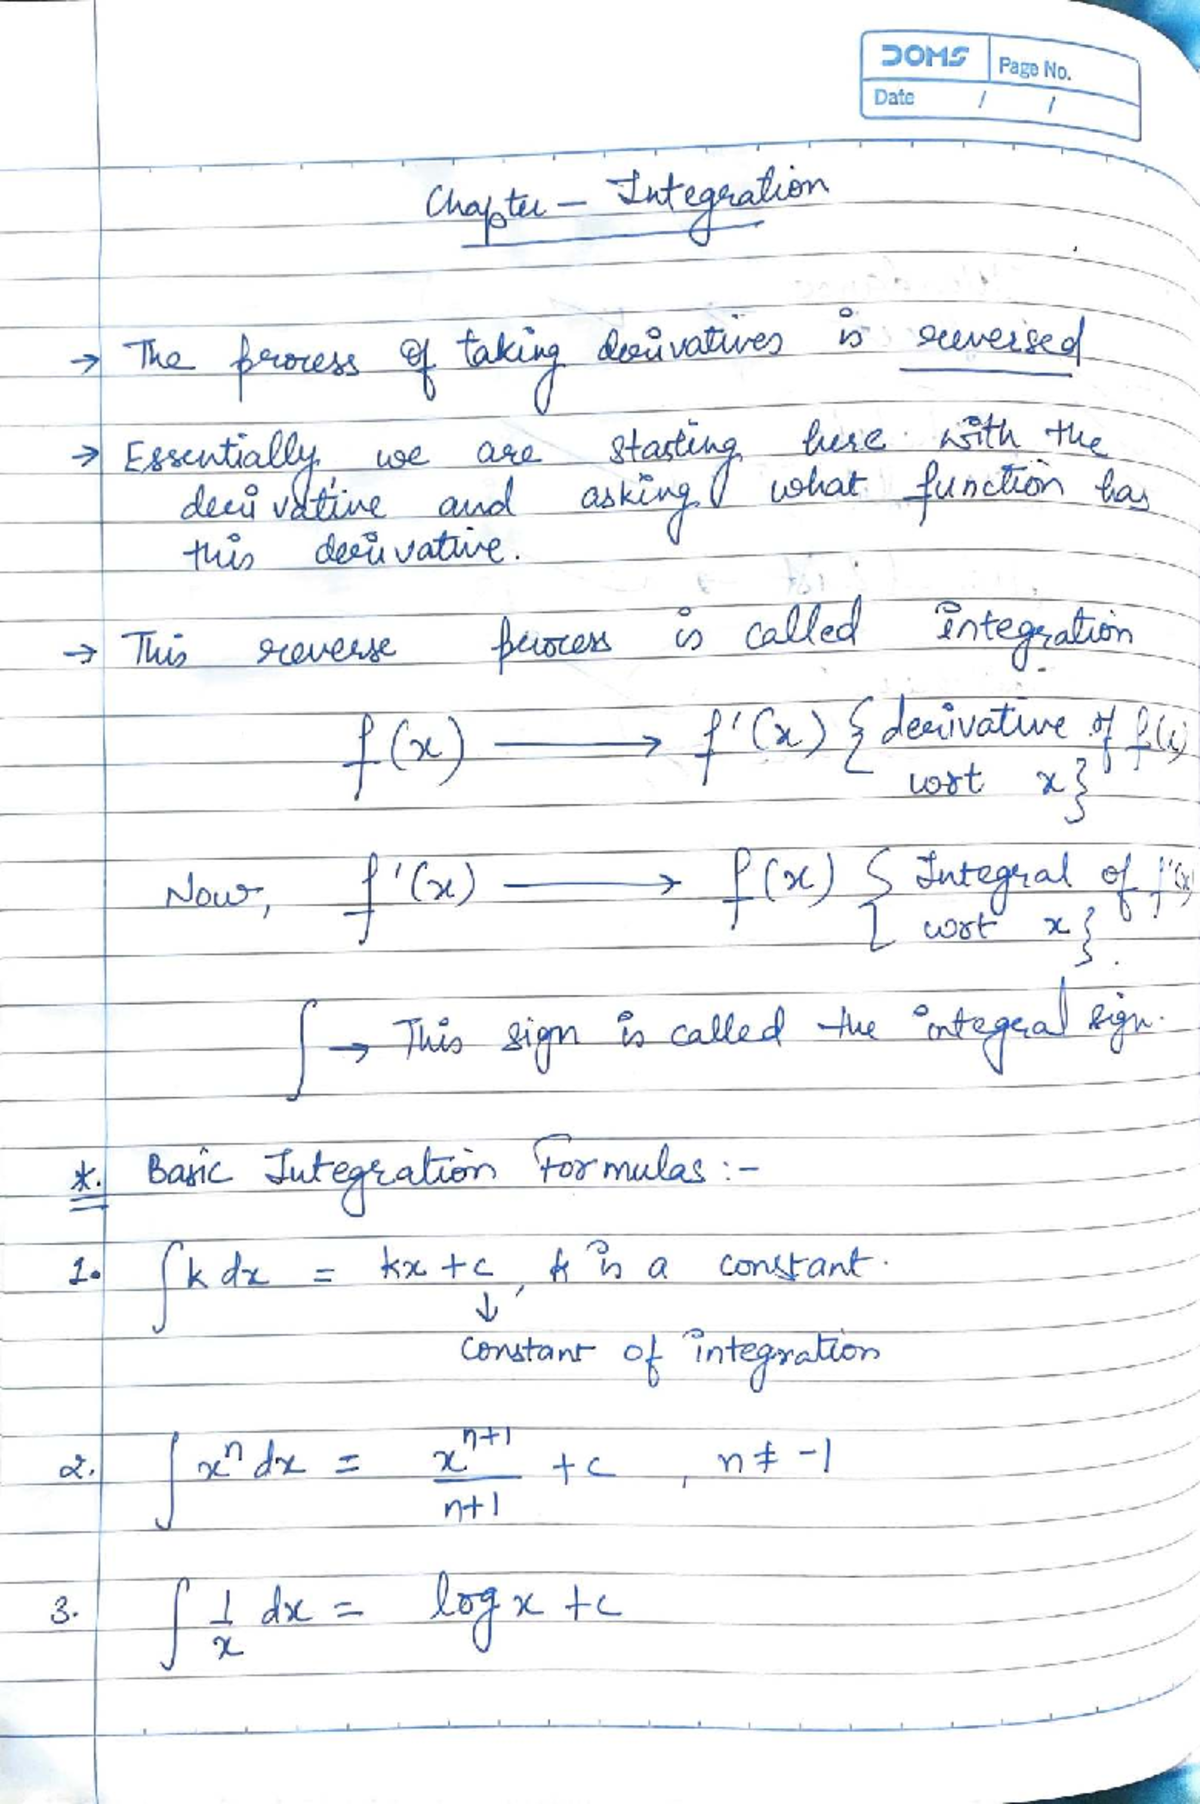 DOMS Page No.
Date / /
Chapter - Integration
→ The process of taking derivatives is reversed
→ Essentially, we are starting here with the
derivative and asking what function has
this derivative.
→ This reverse process is called integration
f(x) ⟶ f'(x) { derivative of f(x)
wrt x}
Now, f'(x) ⟶ f(x) { Integral of f'(x)
wrt x}.
∫ → This sign is called the integral sign.
*. Basic Integration Formulas :-
1. ∫ k dx = kx + c, k is a constant.
↓
constant of integration
2. ∫ xⁿ dx = xⁿ⁺¹/n+1 + c , n ≠ -1
3. ∫ 1/x dx = log x + c